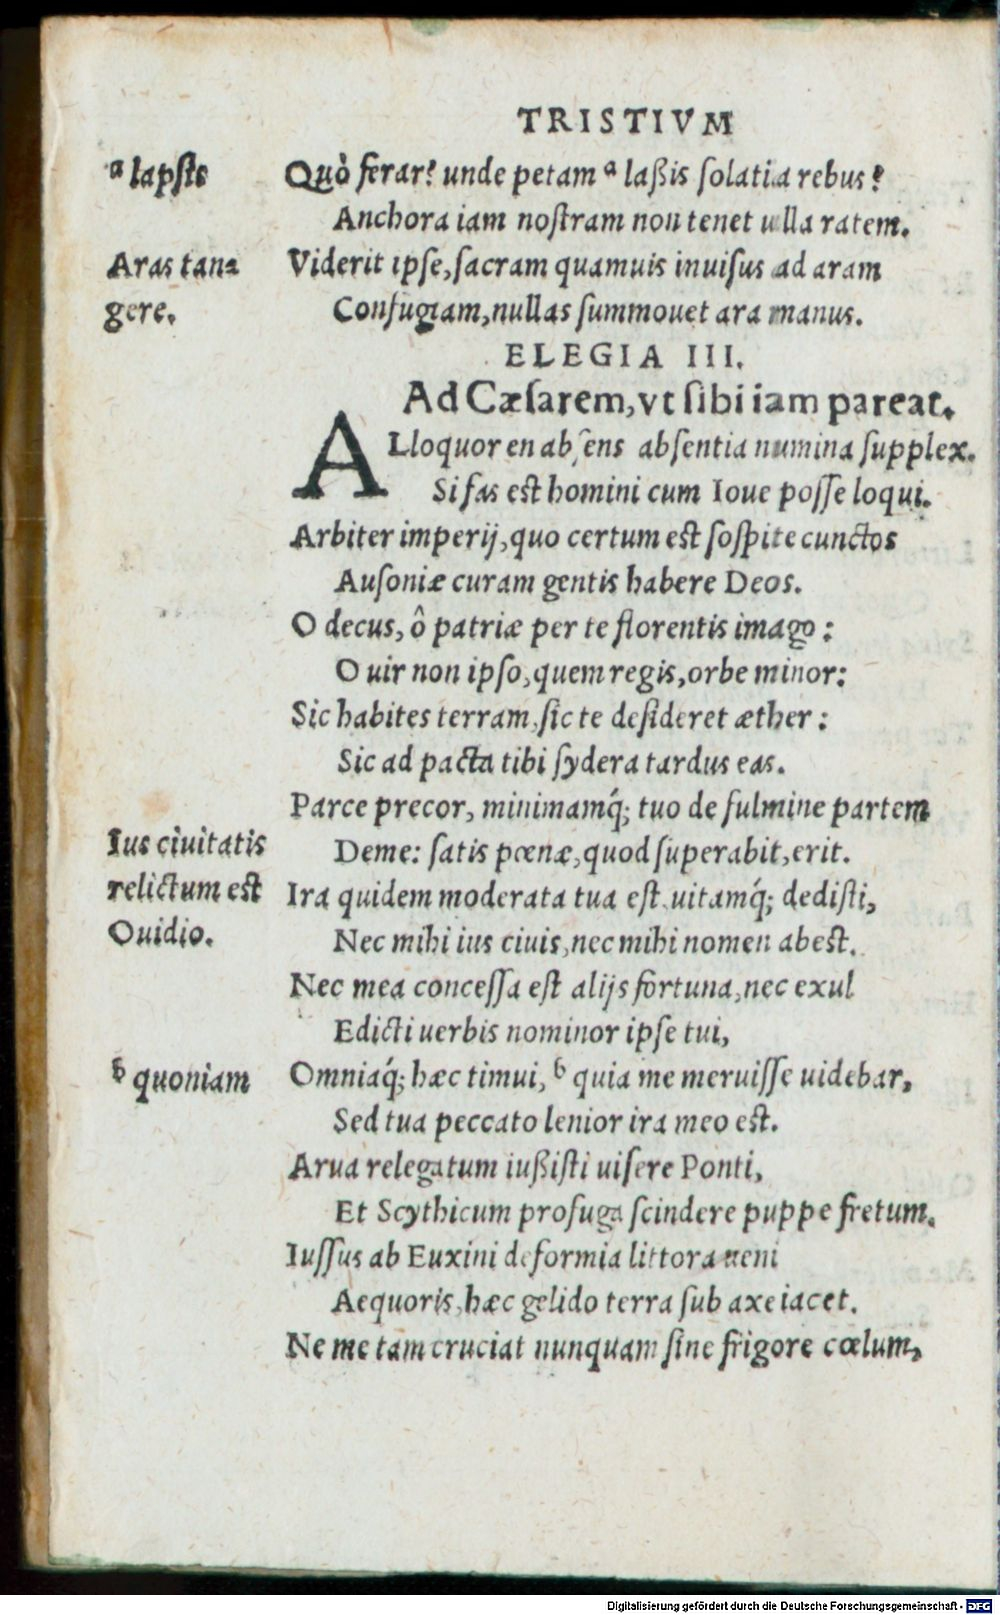 TRISTIVM
ᵃ lapsis
Quò ferar? unde petam ᵃ laßis solatia rebus?
Anchora iam nostram non tenet ulla ratem.
Aras tan=
Viderit ipse, sacram quamuis inuisus ad aram
gere.
Confugiam, nullas summouet ara manus.
ELEGIA III.
Ad Cæsarem, vt sibi iam pareat.
ALloquor en absens absentia numina supplex.
Si fas est homini cum Ioue posse loqui.
Arbiter imperij, quo certum est sospite cunctos
Ausoniæ curam gentis habere Deos.
O decus, ô patriæ per te florentis imago:
O uir non ipso, quem regis, orbe minor:
Sic habites terram, sic te desideret æther:
Sic ad pacta tibi sydera tardus eas.
Parce precor, minimamq́; tuo de fulmine partem
Ius ciuitatis
Deme: satis pœnæ, quod superabit, erit.
relictum est
Ira quidem moderata tua est uitamq́; dedisti,
Ouidio.
Nec mihi ius ciuis, nec mihi nomen abest.
Nec mea concessa est alijs fortuna, nec exul
Edicti uerbis nominor ipse tui,
ᵇ quoniam
Omniaq́; hæc timui, ᵇ quia me meruisse uidebar,
Sed tua peccato lenior ira meo est.
Arua relegatum iußisti uisere Ponti,
Et Scythicum profuga scindere puppe fretum.
Iussus ab Euxini deformia littora ueni
Aequoris, hæc gelido terra sub axe iacet.
Ne me tam cruciat nunquam sine frigore cœlum,
Digitalisierung gefördert durch die Deutsche Forschungsgemeinschaft - DFG